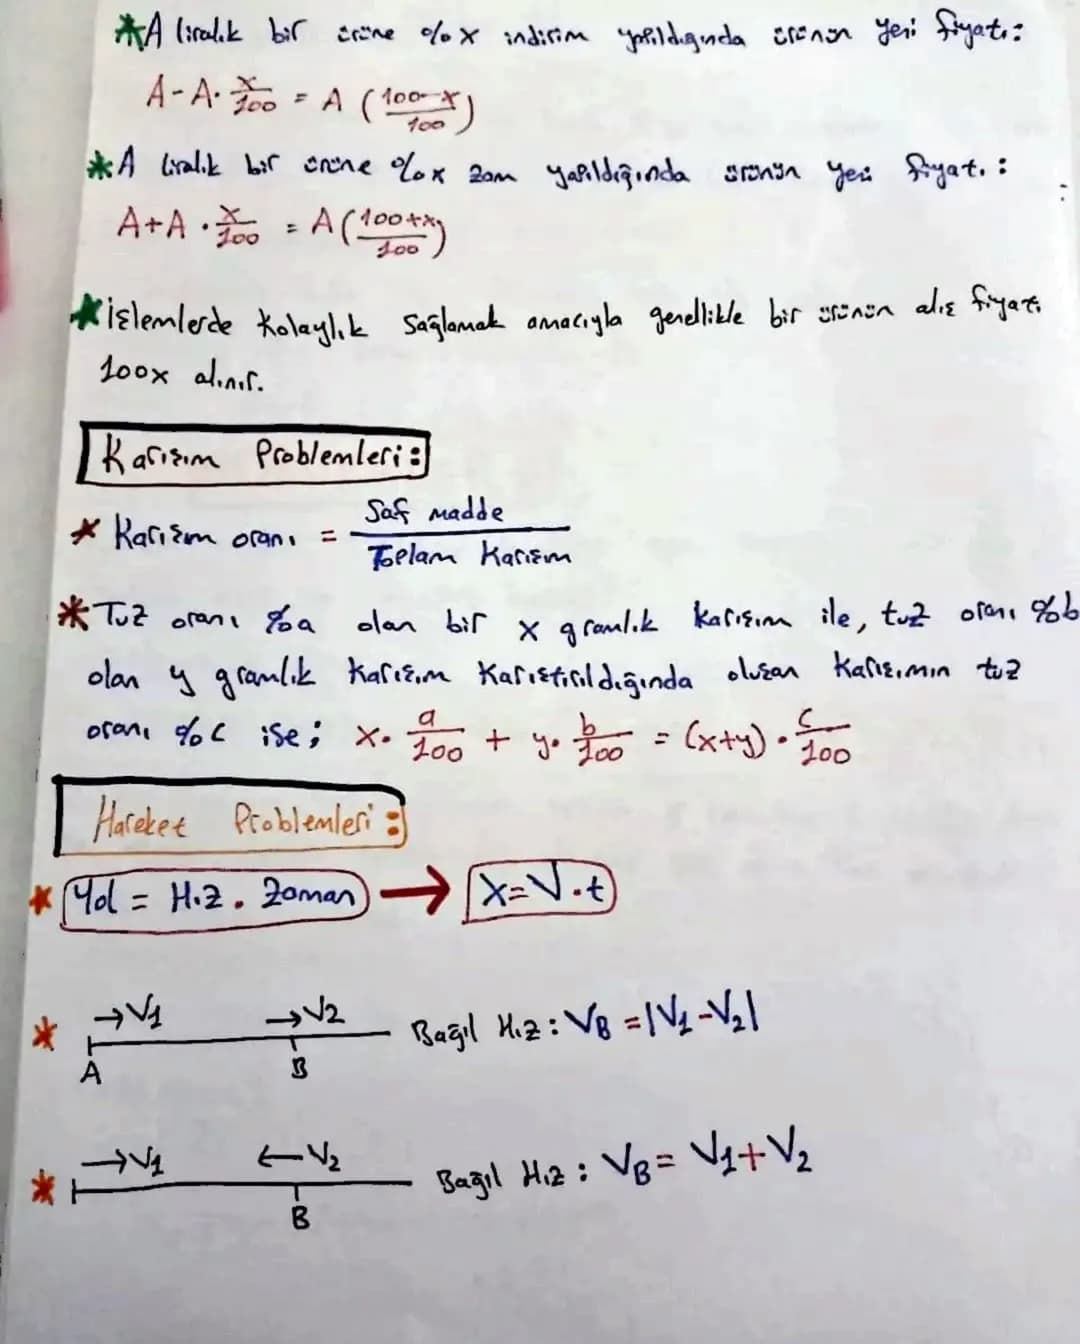 *A liralık bir ürüne %x indirim yapıldığında ürünün yeni fiyatı:
A-A·x/100 = A(100-x/100)
*A liralık bir ürüne %x zam yapıldığında ürünün yeni fiyatı:
A+A·x/100 = A(100+x/100)
*İşlemlerde kolaylık sağlamak amacıyla genellikle bir ürünün alış fiyatı
100x alınır.
Karışım Problemleri:
* Karışım oranı = Saf madde/Toplam Karışım
*Tuz oranı %a olan bir x gramlık karışım ile, tuz oranı %b
olan y gramlık karışım karıştırıldığında oluşan karışımın tuz
oranı %c ise; x·a/100 + y·b/100 = (x+y)·c/100
Hareket Problemleri:
* Yol = Hız. Zaman → x=V.t
* →V1 →V2 Bağıl Hız: VB =|V1-V2|
A B
* →V1 ←V2 Bağıl Hız: VB= V1+V2
B